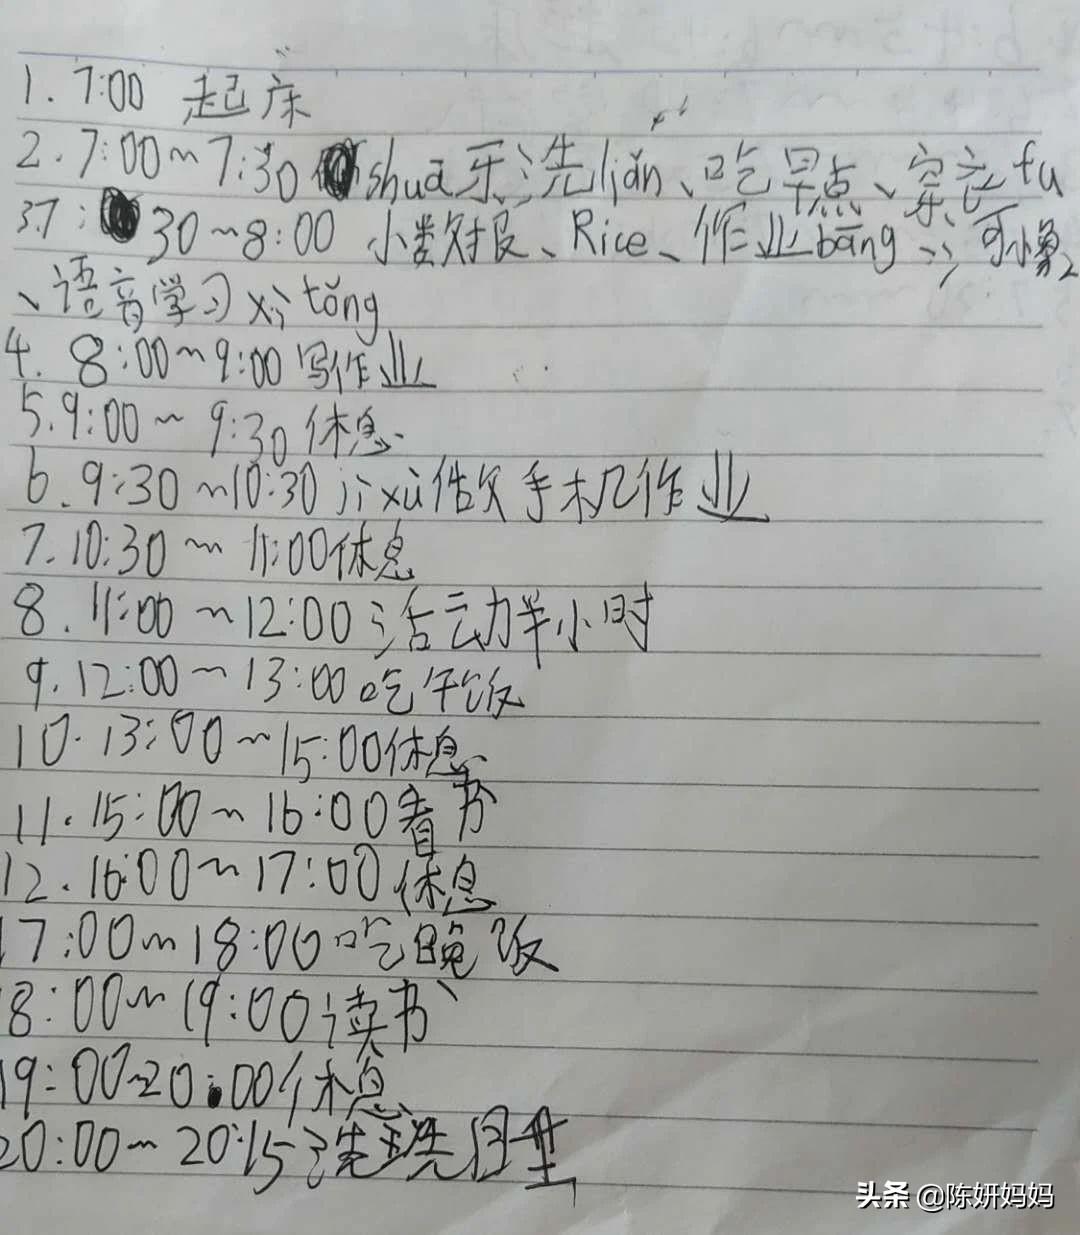 1. 7:00 起床
2. 7:00~7:30 shuā牙、洗liǎn、吃早点、穿衣fu
3 7:30~8:00 小数对报、Rice、作业bāng、河小象
、语音学习xì tǒng
4. 8:00~9:00 写作业
5. 9:00~9:30 休息
6. 9:30~10:30 jì xù做手机作业
7. 10:30~11:00 休息
8. 11:00~12:00 活动半小时
9. 12:00~13:00 吃午饭
10. 13:00~15:00 休息
11. 15:00~16:00 看书
12. 16:00~17:00 休息
17:00~18:00 吃晚饭
8:00~19:00 读书
19:00~20:00 休息
20:00~20:15 洗
头条 @陈妍妈妈